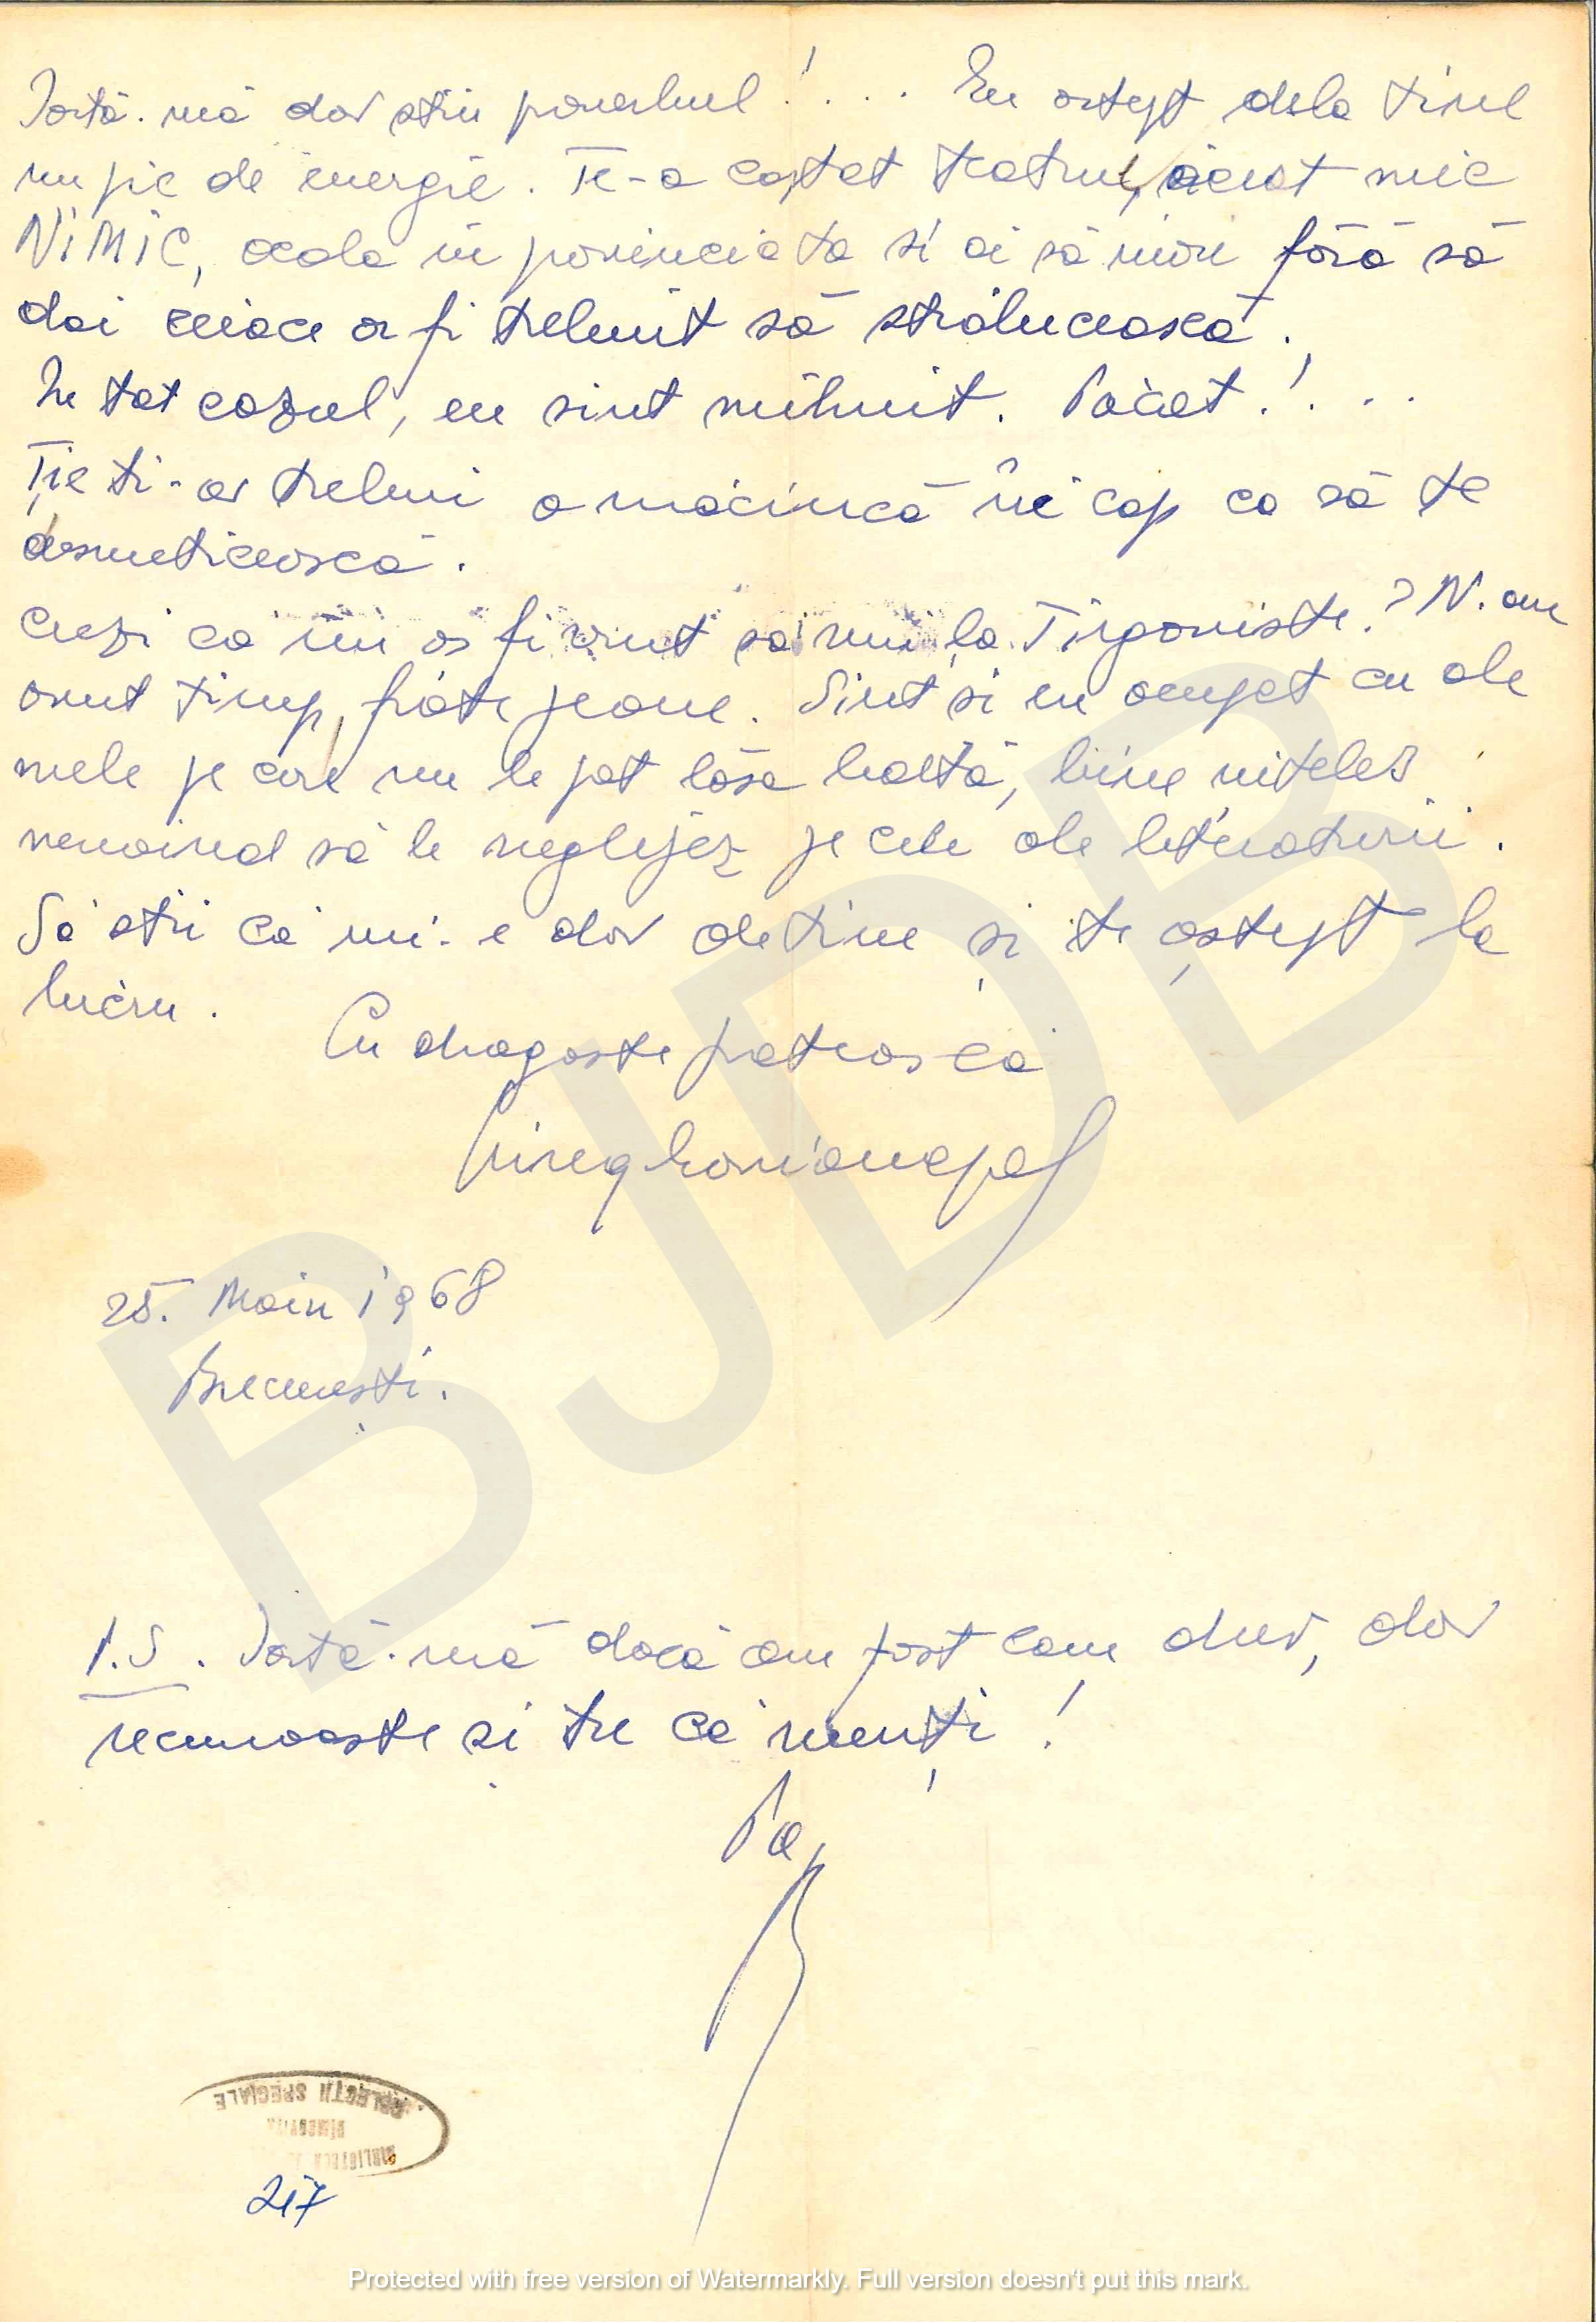 Iartă-mă dar știu proverbul!... Eu aștept dela tine
un pic de energie. Te-a captat teatrul, acest mic
NIMIC, acolo în provincia ta și ai să mori fără să
dai ceiace ar fi trebuit să strălucească.
În tot cazul, eu sint mîhnit. Păcat!...
Ție ți-ar trebui o măciucă în cap ca să te
desmeticească.
Crezi că nu aș fi vrut să viu la Tîrgoviște? N-am
avut timp, frate Jeane. Sint și eu ocupat cu ale
mele pe care nu le pot lăsa baltă, bine înțeles
nevoind să le neglijez pe cele ale literaturii.
Să știi că mi-e dor de tine și te aștept la
lucru.
Cu dragoste frățească
25. Maiu 1968
București.
P.S. Iartă-mă dacă am fost cam dur, dar
recunoaște și tu că merți!
BIBLIOTECA
DÎMBOVIȚA
COLECȚII SPECIALE
217
BJDB
Protected with free version of Watermarkly. Full version doesn't put this mark.